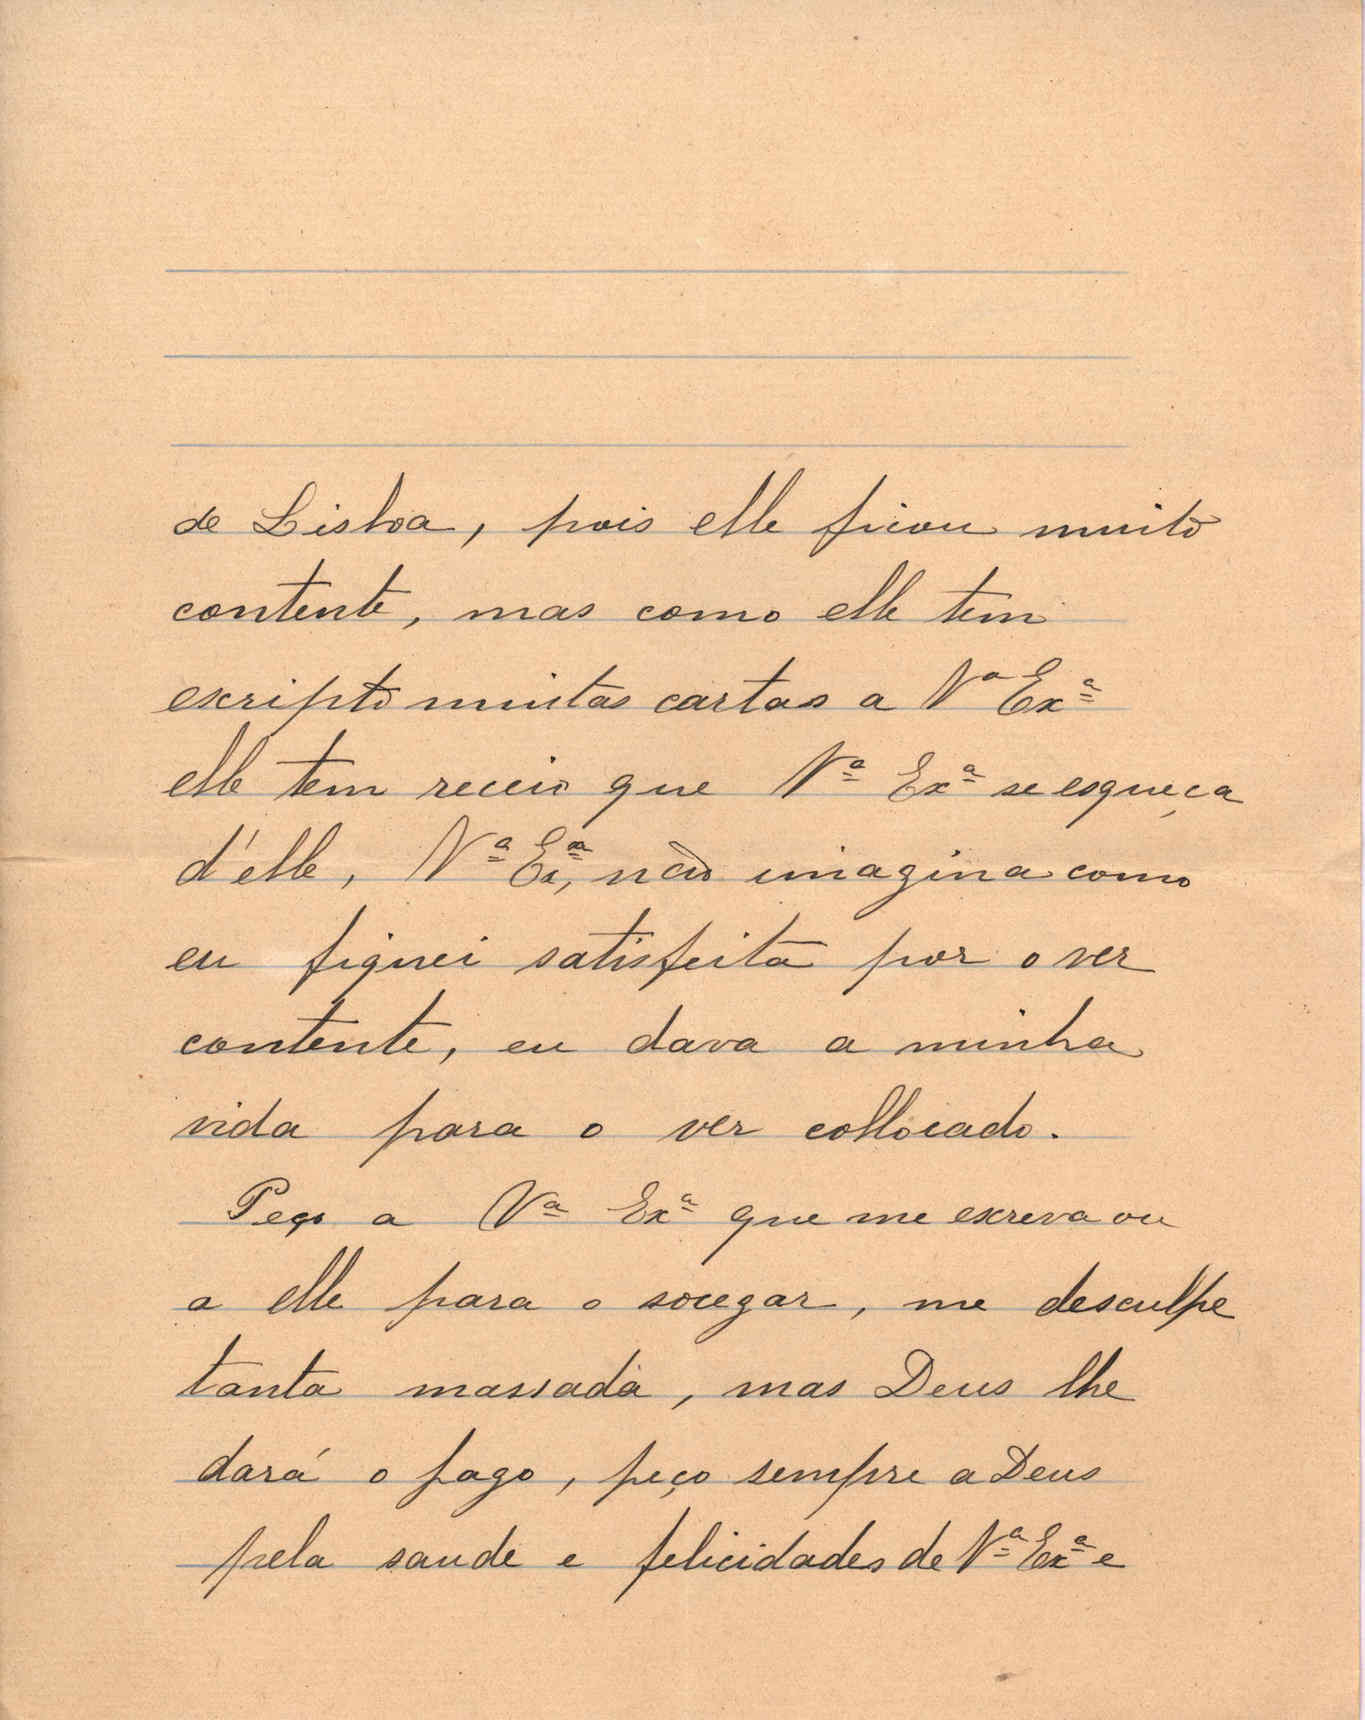 de Lisboa, pois elle ficou muito
contente, mas como elle tem
escripto muitas cartas a Vª Exª
elle tem receio que Vª Exª se esqueça
d'elle, Vª Exª, não imagina como
eu fiquei satisfeita por o ver
contente, eu dava a minha
vida para o ver collocado.
Peço a Vª Exª que me escreva ou
a elle para o socegar, me desculpe
tanta massada, mas Deus lhe
dará o pago, peço sempre a Deus
pela saude e felicidades de Vª Exª e